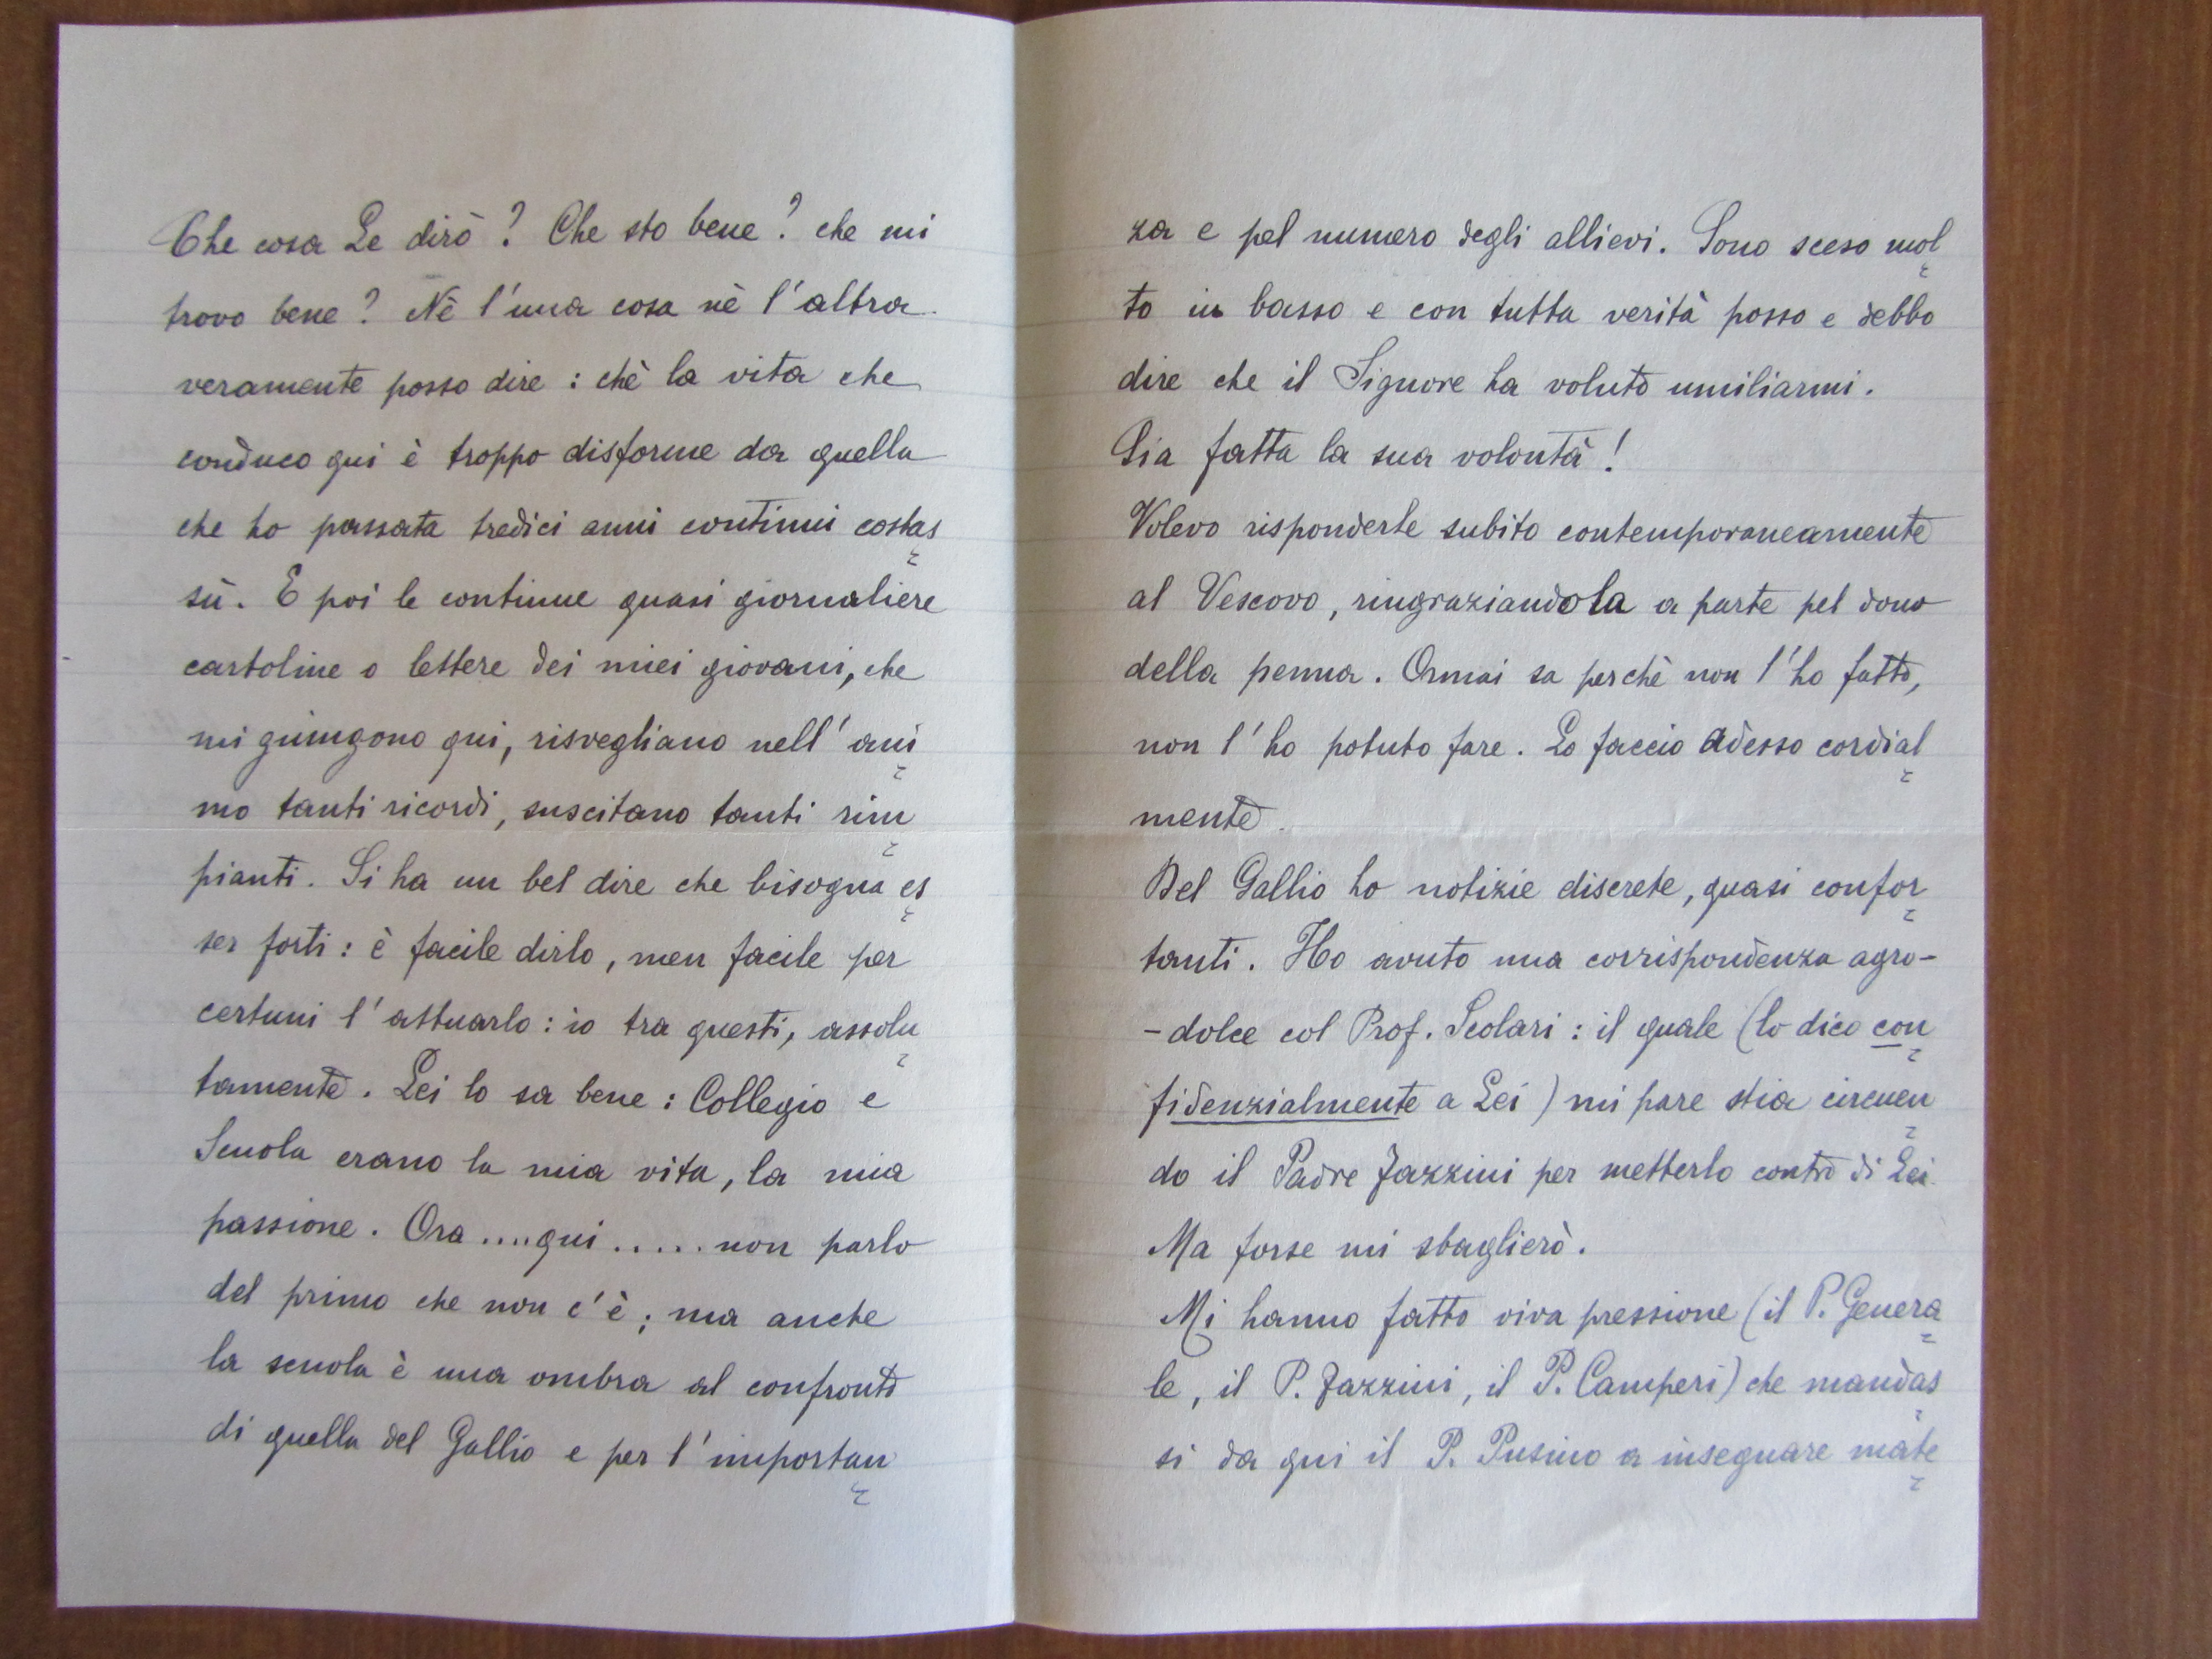 Che cosa Le dirò? Che sto bene? che mi
trovo bene? Nè l'una cosa nè l'altra
veramente posso dire: chè la vita che
conduco qui è troppo disforme da quella
che ho passata tredici anni continui costas
sù. E poi le continue quasi giornaliere
cartoline o lettere dei miei giovani, che
mi giungono qui, risvegliano nell'ani
mo tanti ricordi, suscitano tanti rim
pianti. Si ha un bel dire che bisogna es
ser forti: è facile dirlo, men facile per
certuni l'attuarlo: io tra questi, assolu
tamente. Lei lo sa bene: Collegio e
Scuola erano la mia vita, la mia
passione. Ora....qui.....non parlo
del primo che non c'è; ma anche
la scuola è una ombra al confronto
di quella del Gallio e per l'importan
za e pel numero degli allievi. Sono sceso mol
to in basso e con tutta verità posso e debbo
dire che il Signore ha voluto umiliarmi.
Sia fatta la sua volontà!
Volevo risponderle subito contemporaneamente
al Vescovo, ringraziandola a parte pel dono
della penna. Ormai sa perchè non l'ho fatto,
non l'ho potuto fare. Lo faccio adesso cordial
mente.
Del Gallio ho notizie discrete, quasi confor
tanti. Ho avuto una corrispondenza agro-
-dolce col Prof. Scolari: il quale (lo dico con
fidenzialmente a Lei) mi pare stia circuen
do il Padre Zazzini per metterlo contro di Lei.
Ma forse mi sbaglierò.
Mi hanno fatto viva pressione (il P. Genera
le, il P. Zazzini, il P. Camperi) che mandas
si da qui il P. Pusino a insegnare mate